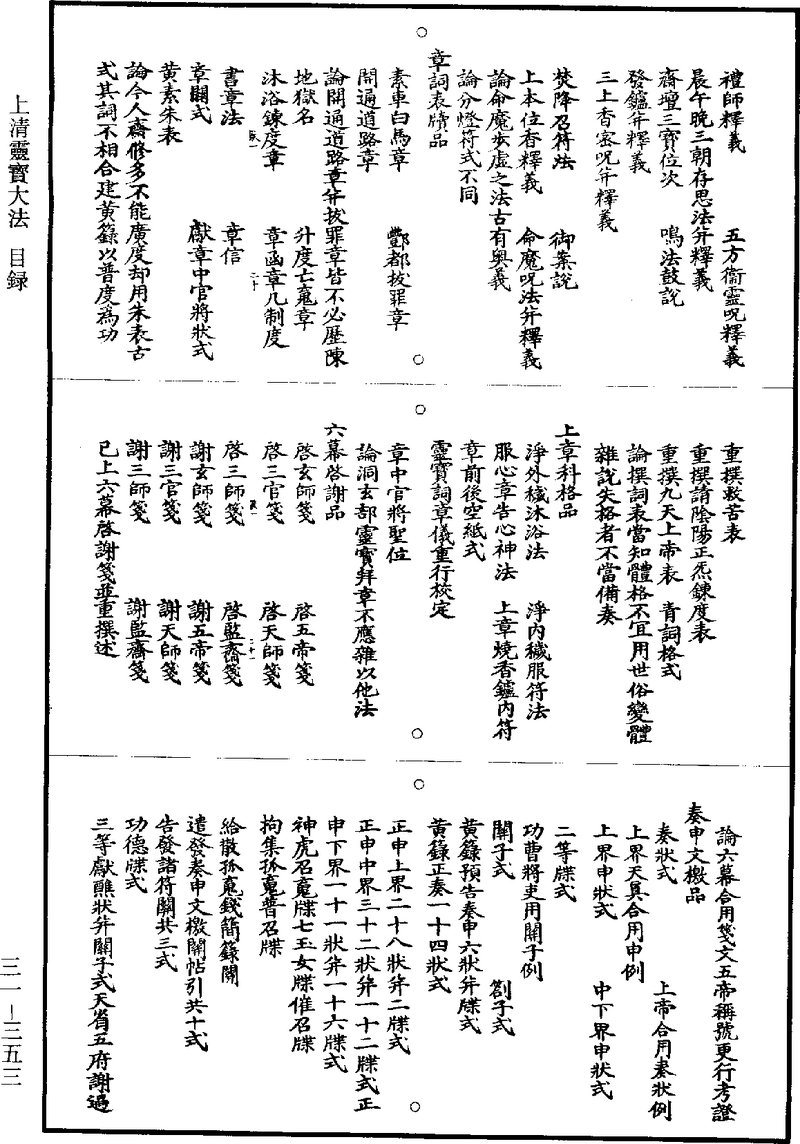 上清靈寶大法 目録
三一－三五三
禮師釋義 五方衞靈呪釋義
晨午晚三朝存思法并釋義
齋壇三寶位次 鳴法鼓說
發鑪并釋義
三上香密呪并釋義
焚降召符法 御案說
上本位香釋義 命魔呪法并釋義
論命魔步虛之法古有奧義
論分燈符式不同
章詞表牘品
素車白馬章 酆都拔罪章
開通道路章
論開通道路章并拔罪章皆不必歷陳
地獄名 升度亡䰟章
沐浴鍊度章 章函章几制度
書章法 章信
章關式 獻章中官將狀式
黄素朱表
論今人齋修多不能廣度却用朱表古
式其詞不相合建黄籙以普度為功
重撰救苦表
重撰請陰陽正炁鍊度表
重撰九天上帝表 青詞格式
論撰詞表當知體格不宜用世俗變體
雜說失格者不當備奏
上章科格品
淨外穢沐浴法 淨内穢服符法
服心章告心神法 上章燒香鑪内符
章前後空紙式
靈寶詞章儀重行校定
章中官將聖位
論洞玄部靈寶拜章不應雜以他法
六幕啓謝品
啓玄師箋 啓五帝箋
啓三官箋 啓天師箋
啓三師箋 啓監齋箋
謝玄師箋 謝五帝箋
謝三官箋 謝天師箋
謝三師箋 謝監齋箋
已上六幕啓謝箋並重撰述
論六幕合用箋文五帝稱號更行考證
奏申文檄品
奏狀式 上帝合用奏狀例
上界天真合用申例
上界申狀式 中下界申狀式
二等牒式
功曹將吏用關子例
關子式 劄子式
黄籙預告奏申六狀并牒式
黄籙正奏一十四狀式
正申上界二十八狀并二牒式
正申中界三十二狀并一十二牒式正
申下界一十一狀并一十六牒式
神虎召䰟牒七玉女牒催召牒
拘集孤䰟普召牒
給散孤䰟錢簡籙關
遣發奏申文檄關帖引共十式
告發諸符關共三式
功德牒式
三等獻醮狀并關子式天省五府謝過